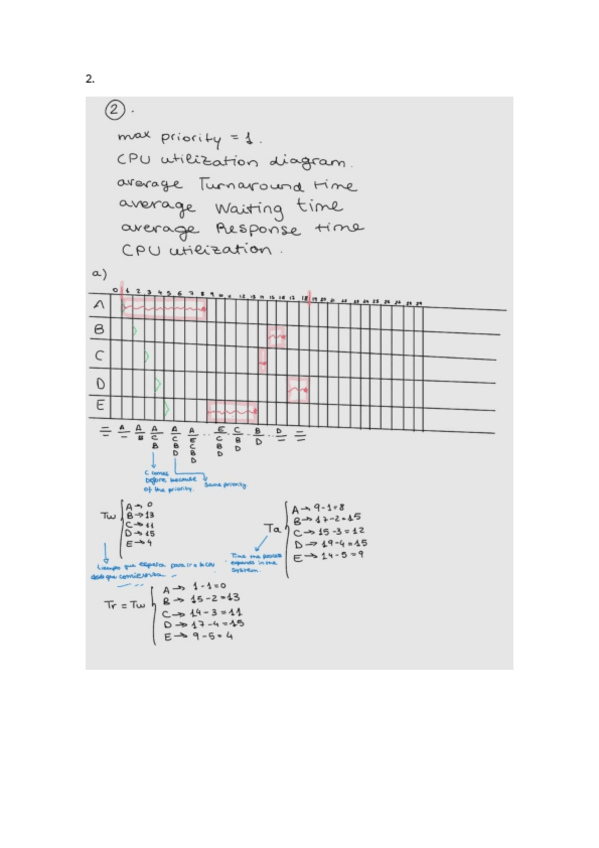 2.
2.
max priority = 1.
CPU utilization diagram.
average Turnaround time
average Waiting time
average Response time
CPU utilization.
a)
0 1 2 3 4 5 6 7 8 9 10 11 12 13 14 15 16 17 18 19 20 21 22 23 24 25 26
A
B
C
D
E
= A A A A A .. E C B D =
B C C E C B D
B B C B D
D B D
D
C comes before because of the priority.
Same priority
Tw
A → 0
B → 13
C → 11
D → 15
E → 4
Ta
A → 9-1=8
B → 17-2=15
C → 15-3=12
D → 19-4=15
E → 14-5=9
Time the process expends in the system.
tiempo que espera para ir a
desde que comienza
Tr = Tw
A → 1-1=0
B → 15-2=13
C → 14-3=11
D → 17-4=15
E → 9-5=4